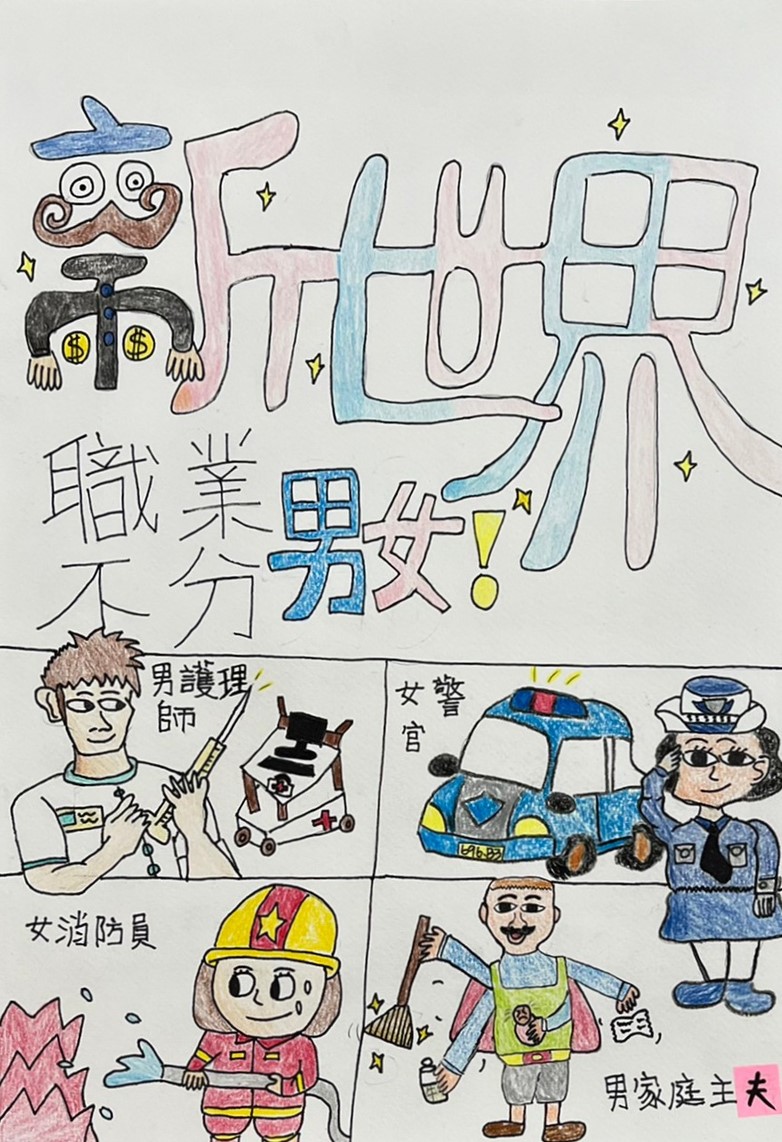 新世界
職業
不分
男女!
男護理
師
女警
官
696.B3
女消防員
男家庭主夫